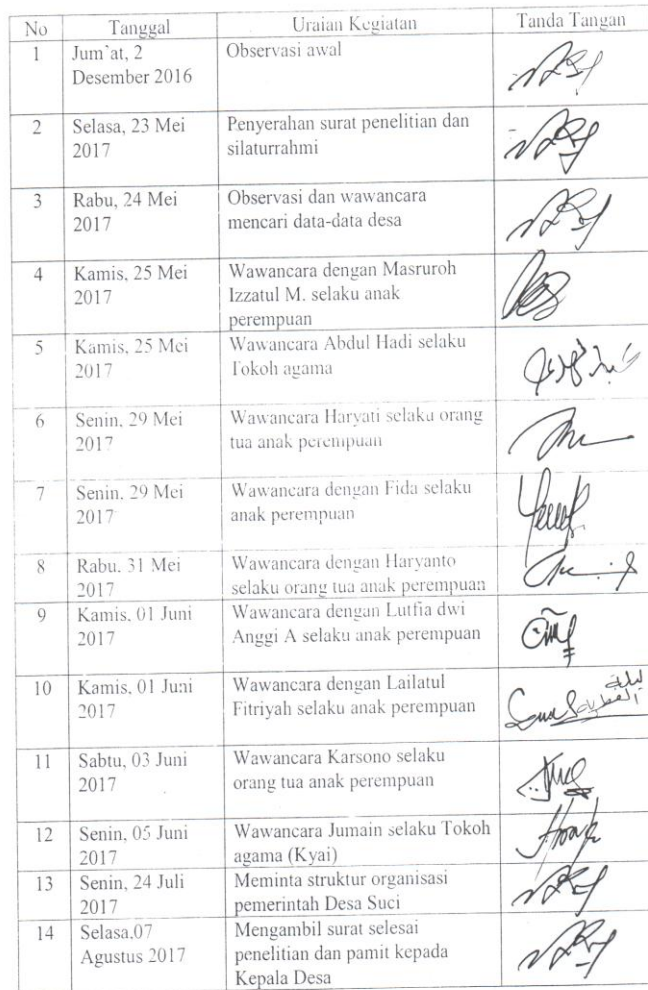 No Tanggal Uraian Kegiatan Tanda Tangan
1 Jum`at, 2 Observasi awal
Desember 2016
2 Selasa, 23 Mei Penyerahan surat penelitian dan
2017 silaturrahmi
3 Rabu, 24 Mei Observasi dan wawancara
2017 mencari data-data desa
4 Kamis, 25 Mei Wawancara dengan Masruroh
2017 Izzatul M. selaku anak
perempuan
5 Kamis, 25 Mei Wawancara Abdul Hadi selaku
2017 Tokoh agama
6 Senin, 29 Mei Wawancara Haryati selaku orang
2017 tua anak perempuan
7 Senin, 29 Mei Wawancara dengan Fida selaku
2017 anak perempuan
8 Rabu. 31 Mei Wawancara dengan Haryanto
2017 selaku orang tua anak perempuan
9 Kamis, 01 Juni Wawancara dengan Lutfia dwi
2017 Anggi A selaku anak perempuan
10 Kamis, 01 Juni Wawancara dengan Lailatul
2017 Fitriyah selaku anak perempuan
11 Sabtu, 03 Juni Wawancara Karsono selaku
2017 orang tua anak perempuan
12 Senin, 05 Juni Wawancara Jumain selaku Tokoh
2017 agama (Kyai)
13 Senin, 24 Juli Meminta struktur organisasi
2017 pemerintah Desa Suci
14 Selasa,07 Mengambil surat selesai
Agustus 2017 penelitian dan pamit kepada
Kepala Desa